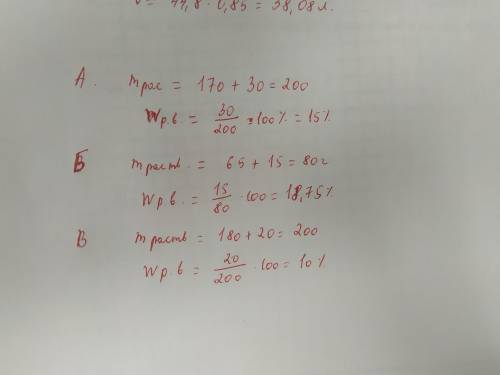 V = 44,8 · 0,85 = 38,08 л.
А. m рас = 170 + 30 = 200
W р.в. = 30/200 · 100% = 15%
Б m раств. = 65 + 15 = 80 г
W р.в. = 15/80 · 100 = 18,75%
В m раств = 180 + 20 = 200
W р.в = 20/200 · 100 = 10%